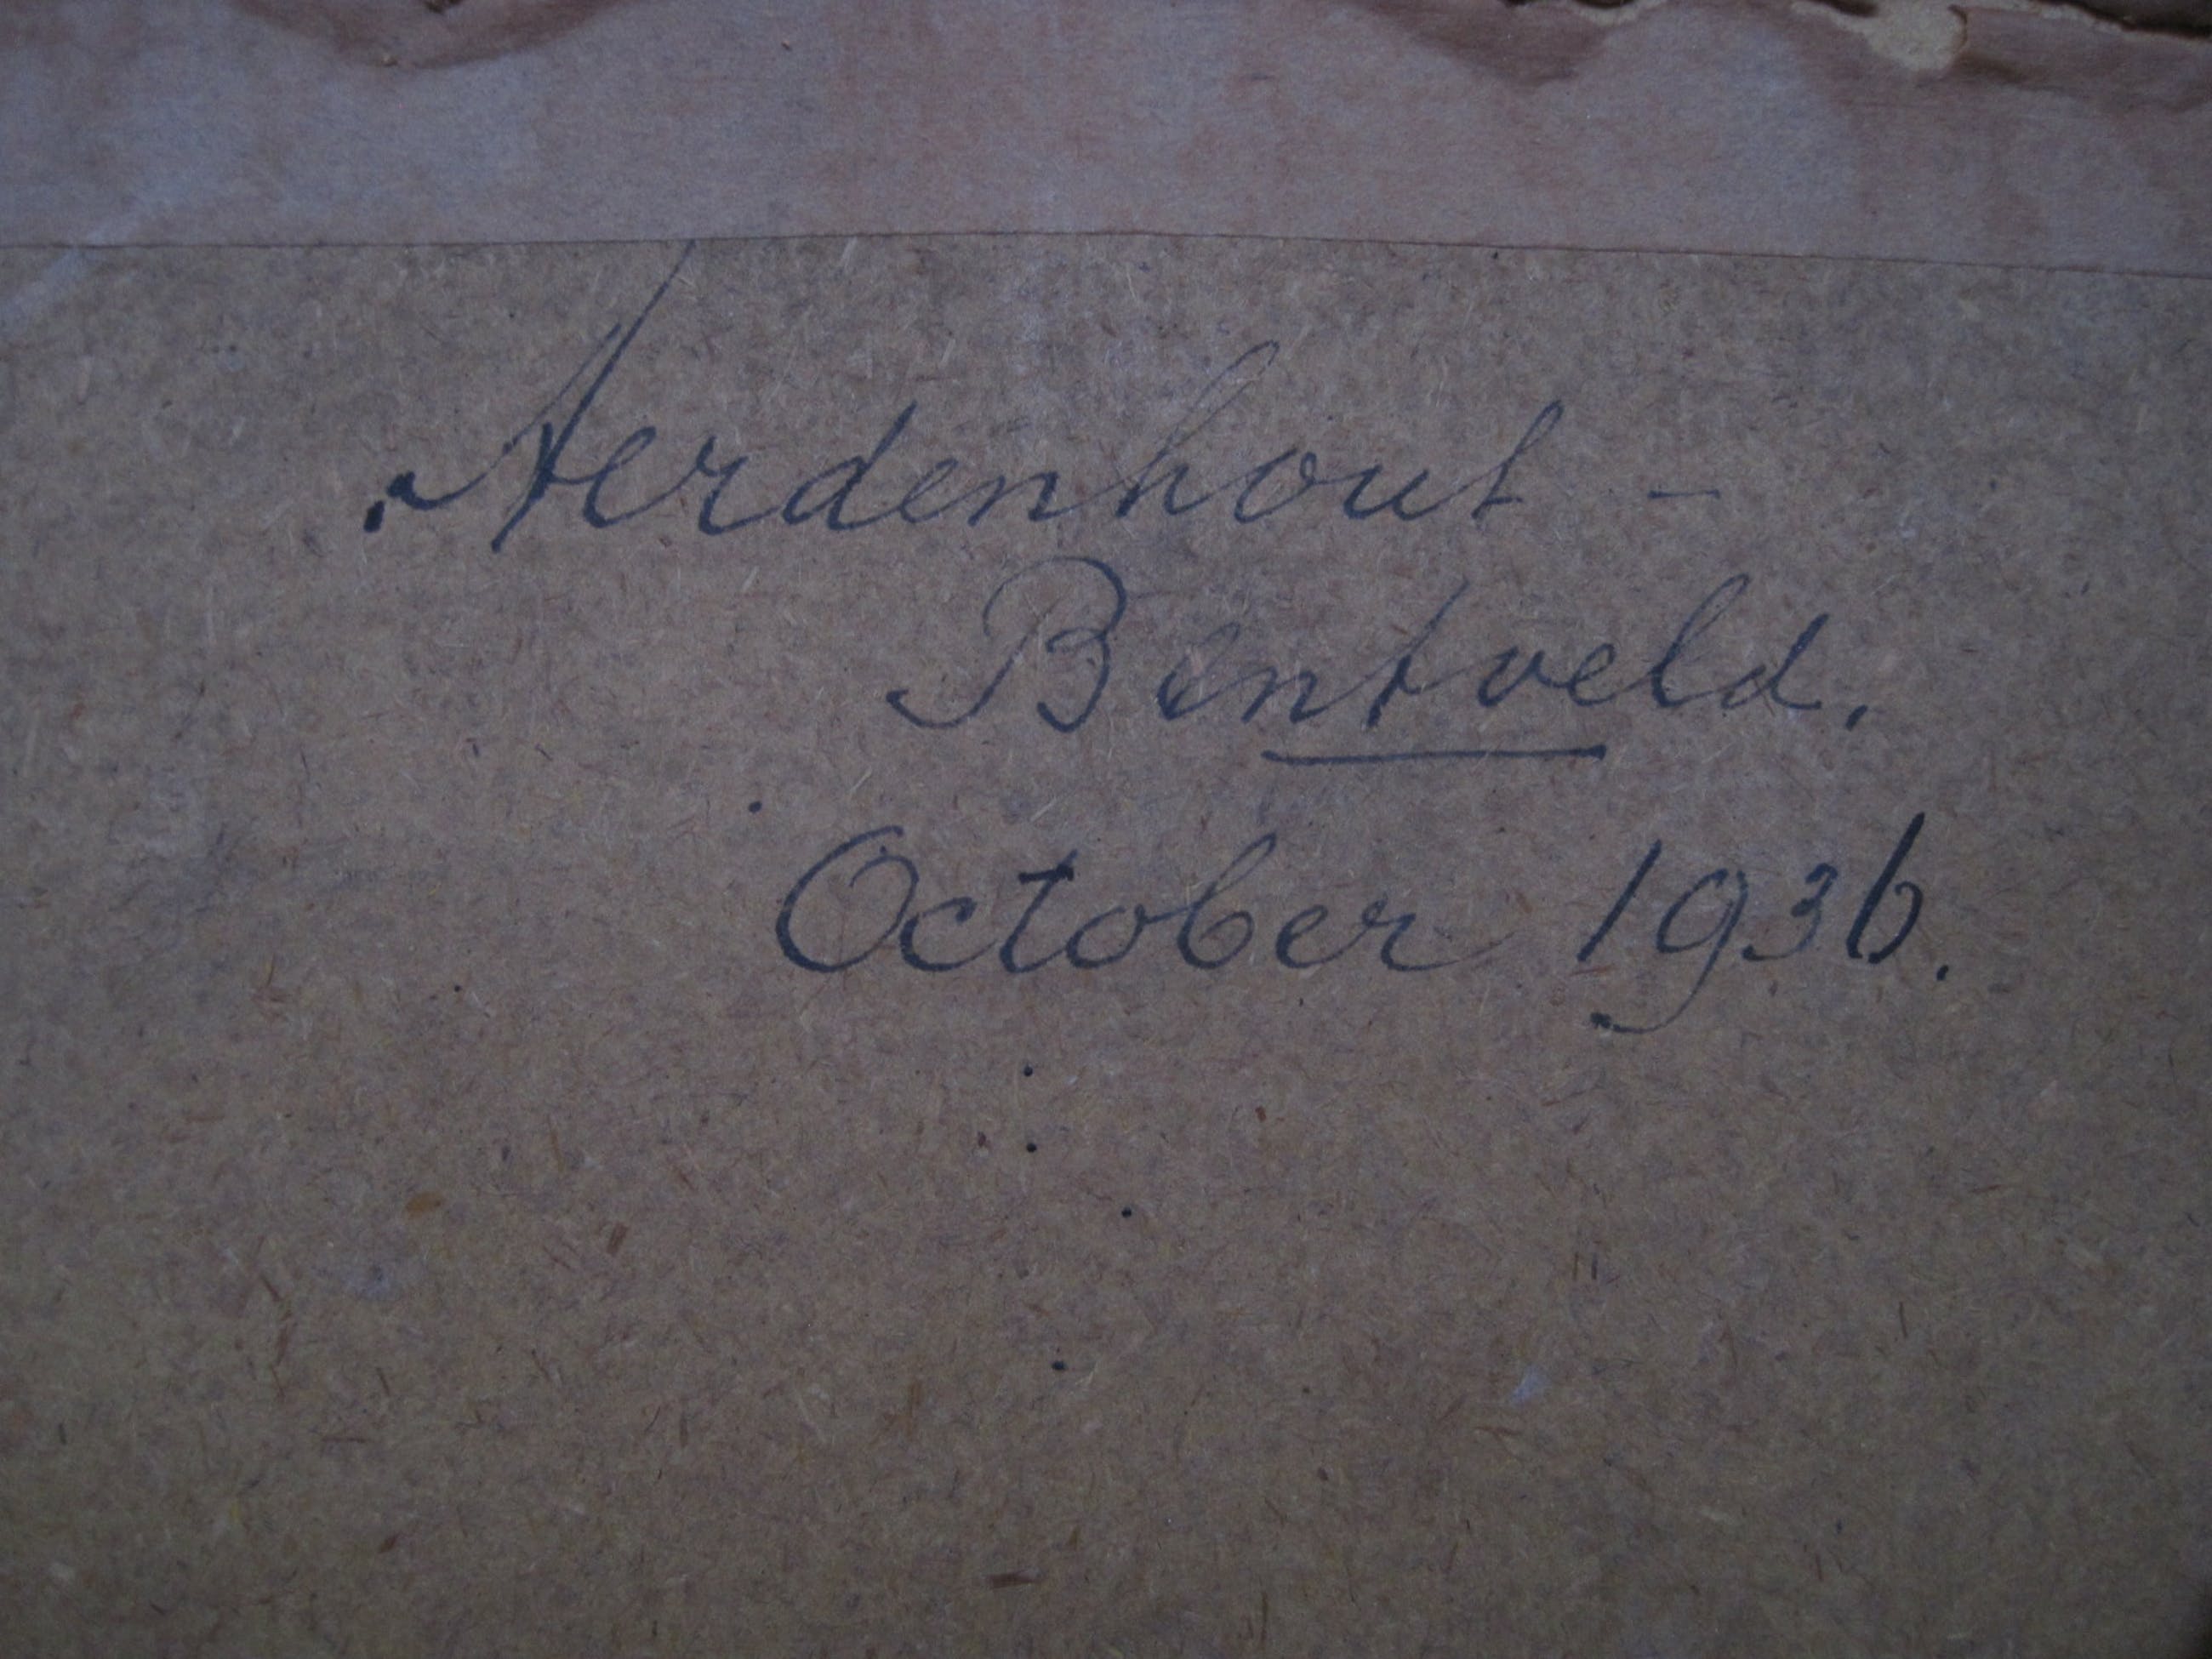 Aerdenhout -
Bentveld.
October 1936.